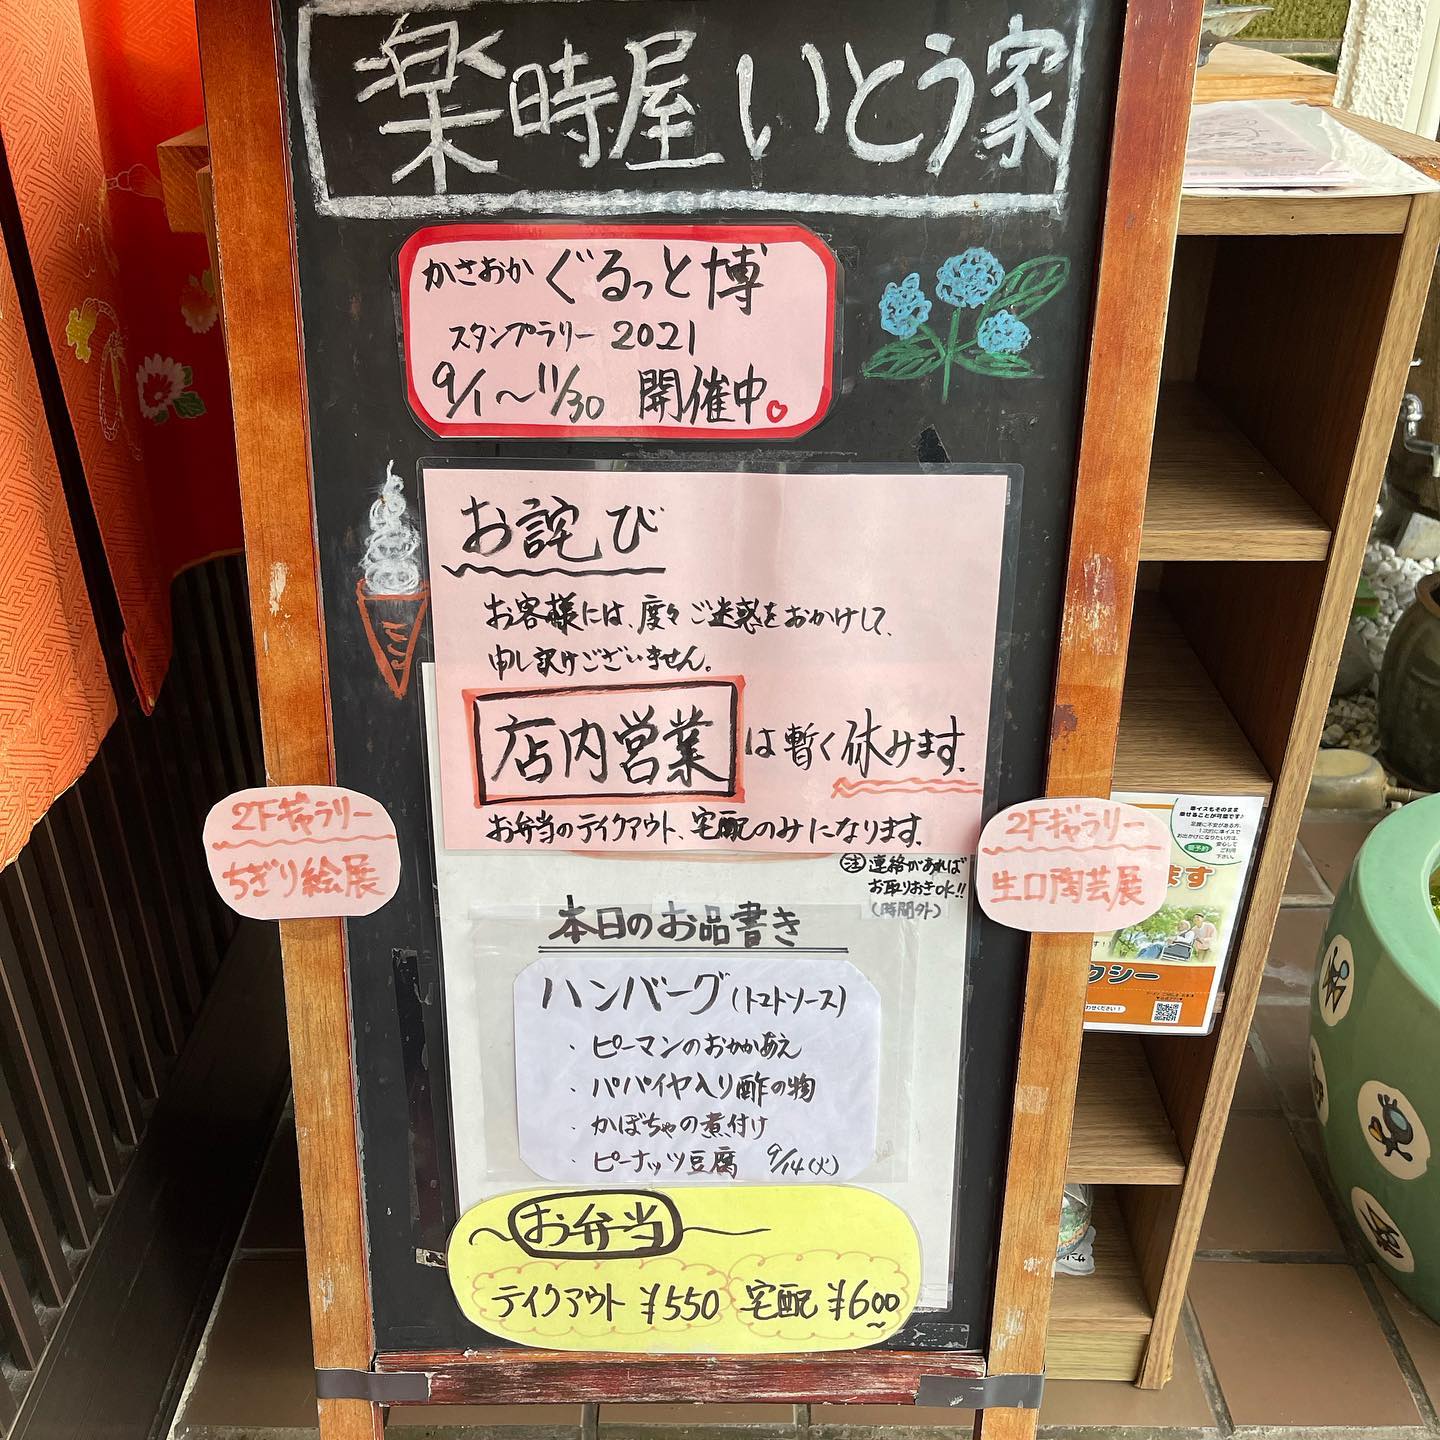 楽時屋 いとう家
かさおか ぐるっと博
スタンプラリー 2021
9/1〜11/30 開催中。
お詫び
お客様には、度々ご迷惑をおかけして、
申し訳けございません。
店内営業 は暫く休みます。
お弁当のテイクアウト、宅配のみになります。
注 連絡があれば
お取りおきOK!!
(時間外)
2Fギャラリー
ちぎり絵展
2Fギャラリー
生口陶芸展
本日のお品書き
ハンバーグ(トマトソース)
・ピーマンのおかかあえ
・パパイヤ入り酢の物
・かぼちゃの煮付け
・ピーナッツ豆腐 9/14(火)
お弁当
テイクアウト ¥550 宅配 ¥600
車イスもそのまま
乗せることが可能です♪
要予約
ます
クシー